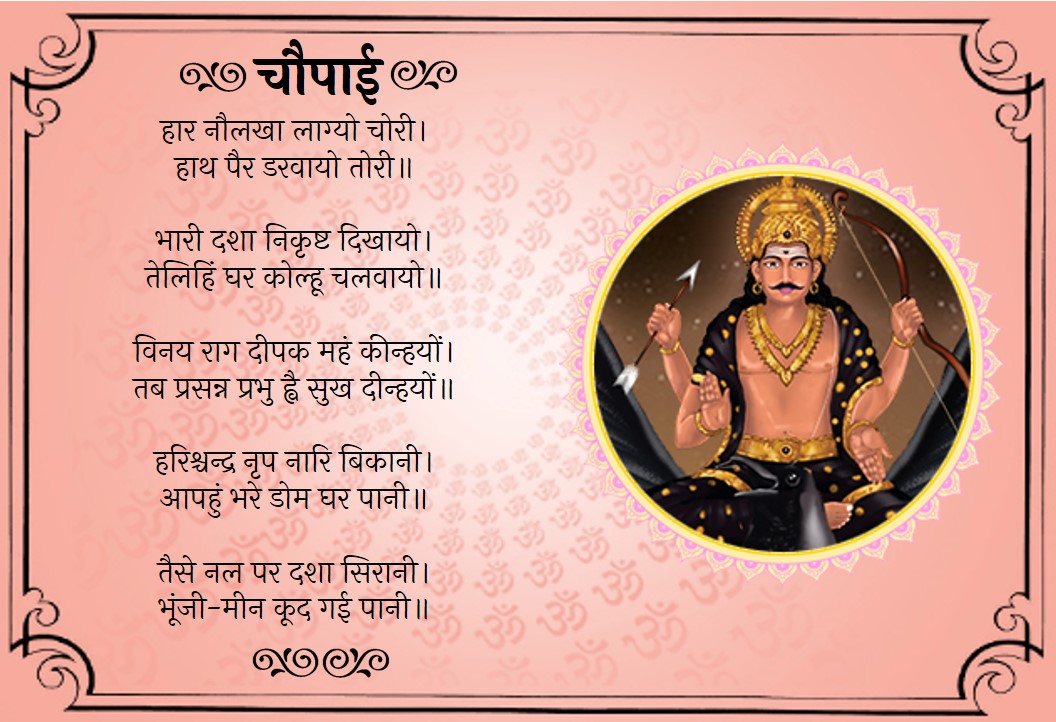 चौपाई
हार नौलखा लाग्यो चोरी।
हाथ पैर डरवायो तोरी॥
भारी दशा निकृष्ट दिखायो।
तेलिहिं घर कोल्हू चलवायो॥
विनय राग दीपक महं कीन्हयों।
तब प्रसन्न प्रभु ह्वै सुख दीन्हयों॥
हरिश्चन्द्र नृप नारि बिकानी।
आपहुं भरे डोम घर पानी॥
तैसे नल पर दशा सिरानी।
भूंजी-मीन कूद गई पानी॥